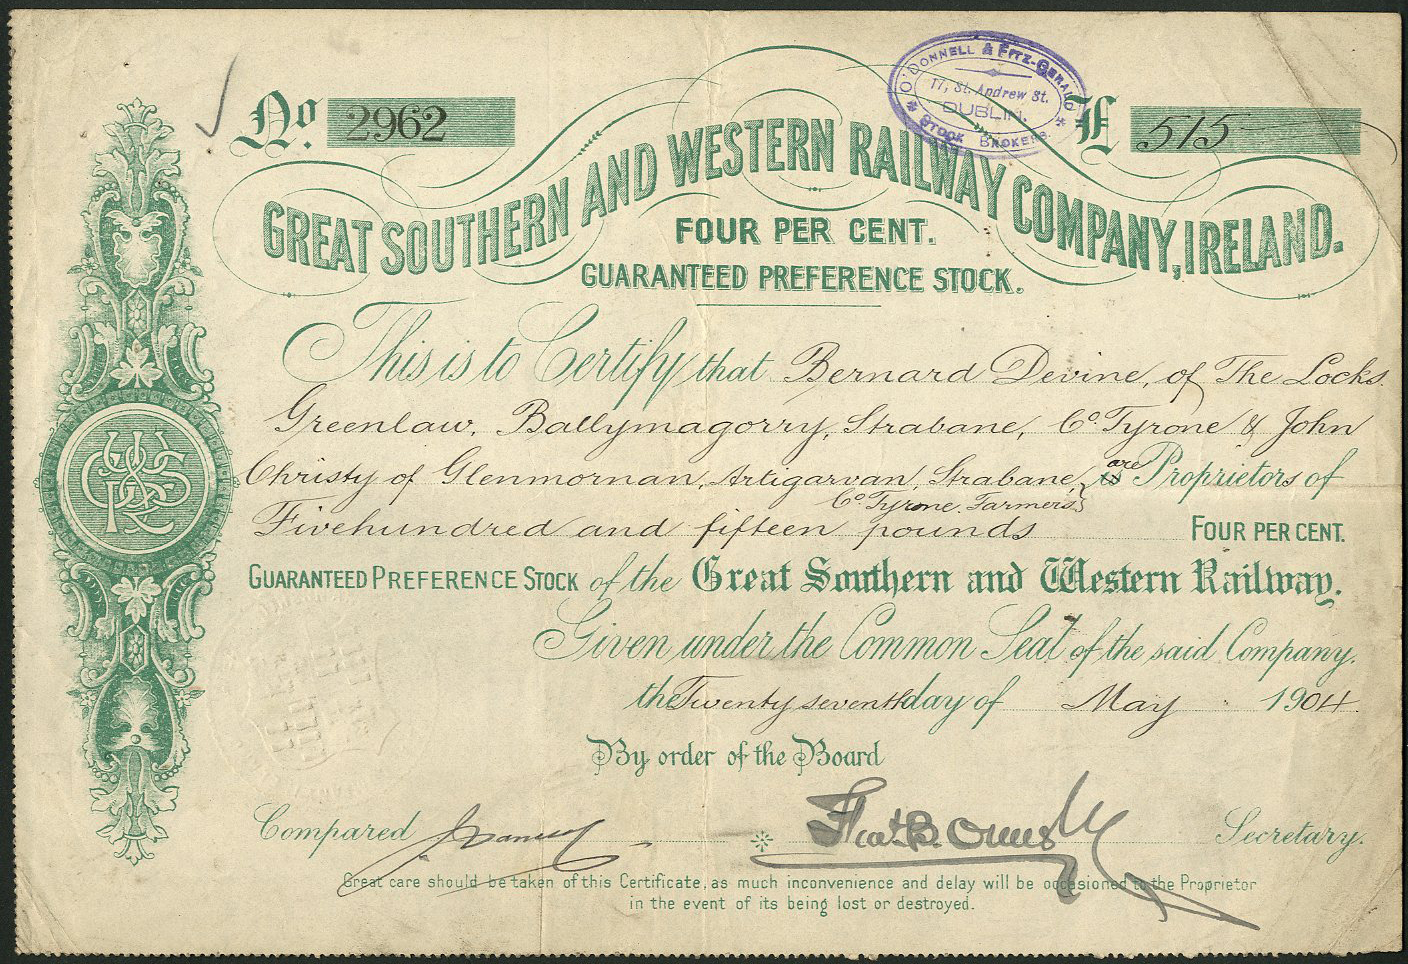 No. 2962
O'DONNELL & FITZ-GERALD
17, St. Andrew St.
DUBLIN.
STOCK BROKERS
£ 515
GREAT SOUTHERN AND WESTERN RAILWAY COMPANY, IRELAND.
FOUR PER CENT.
GUARANTEED PREFERENCE STOCK.
This is to Certify that Bernard Devine, of The Locks
Greenlaw, Ballymagorry, Strabane, Co Tyrone & John
Christy of Glenmornan, Artigarvan, Strabane, is are Proprietors of
Co Tyrone, Farmers
Fivehundred and fifteen pounds FOUR PER CENT.
GUARANTEED PREFERENCE STOCK of the Great Southern and Western Railway.
Given under the Common Seal of the said Company.
the Twenty seventh day of May 1904
By order of the Board
Compared
Secretary.
Great care should be taken of this Certificate, as much inconvenience and delay will be occasioned to the Proprietor
in the event of its being lost or destroyed.